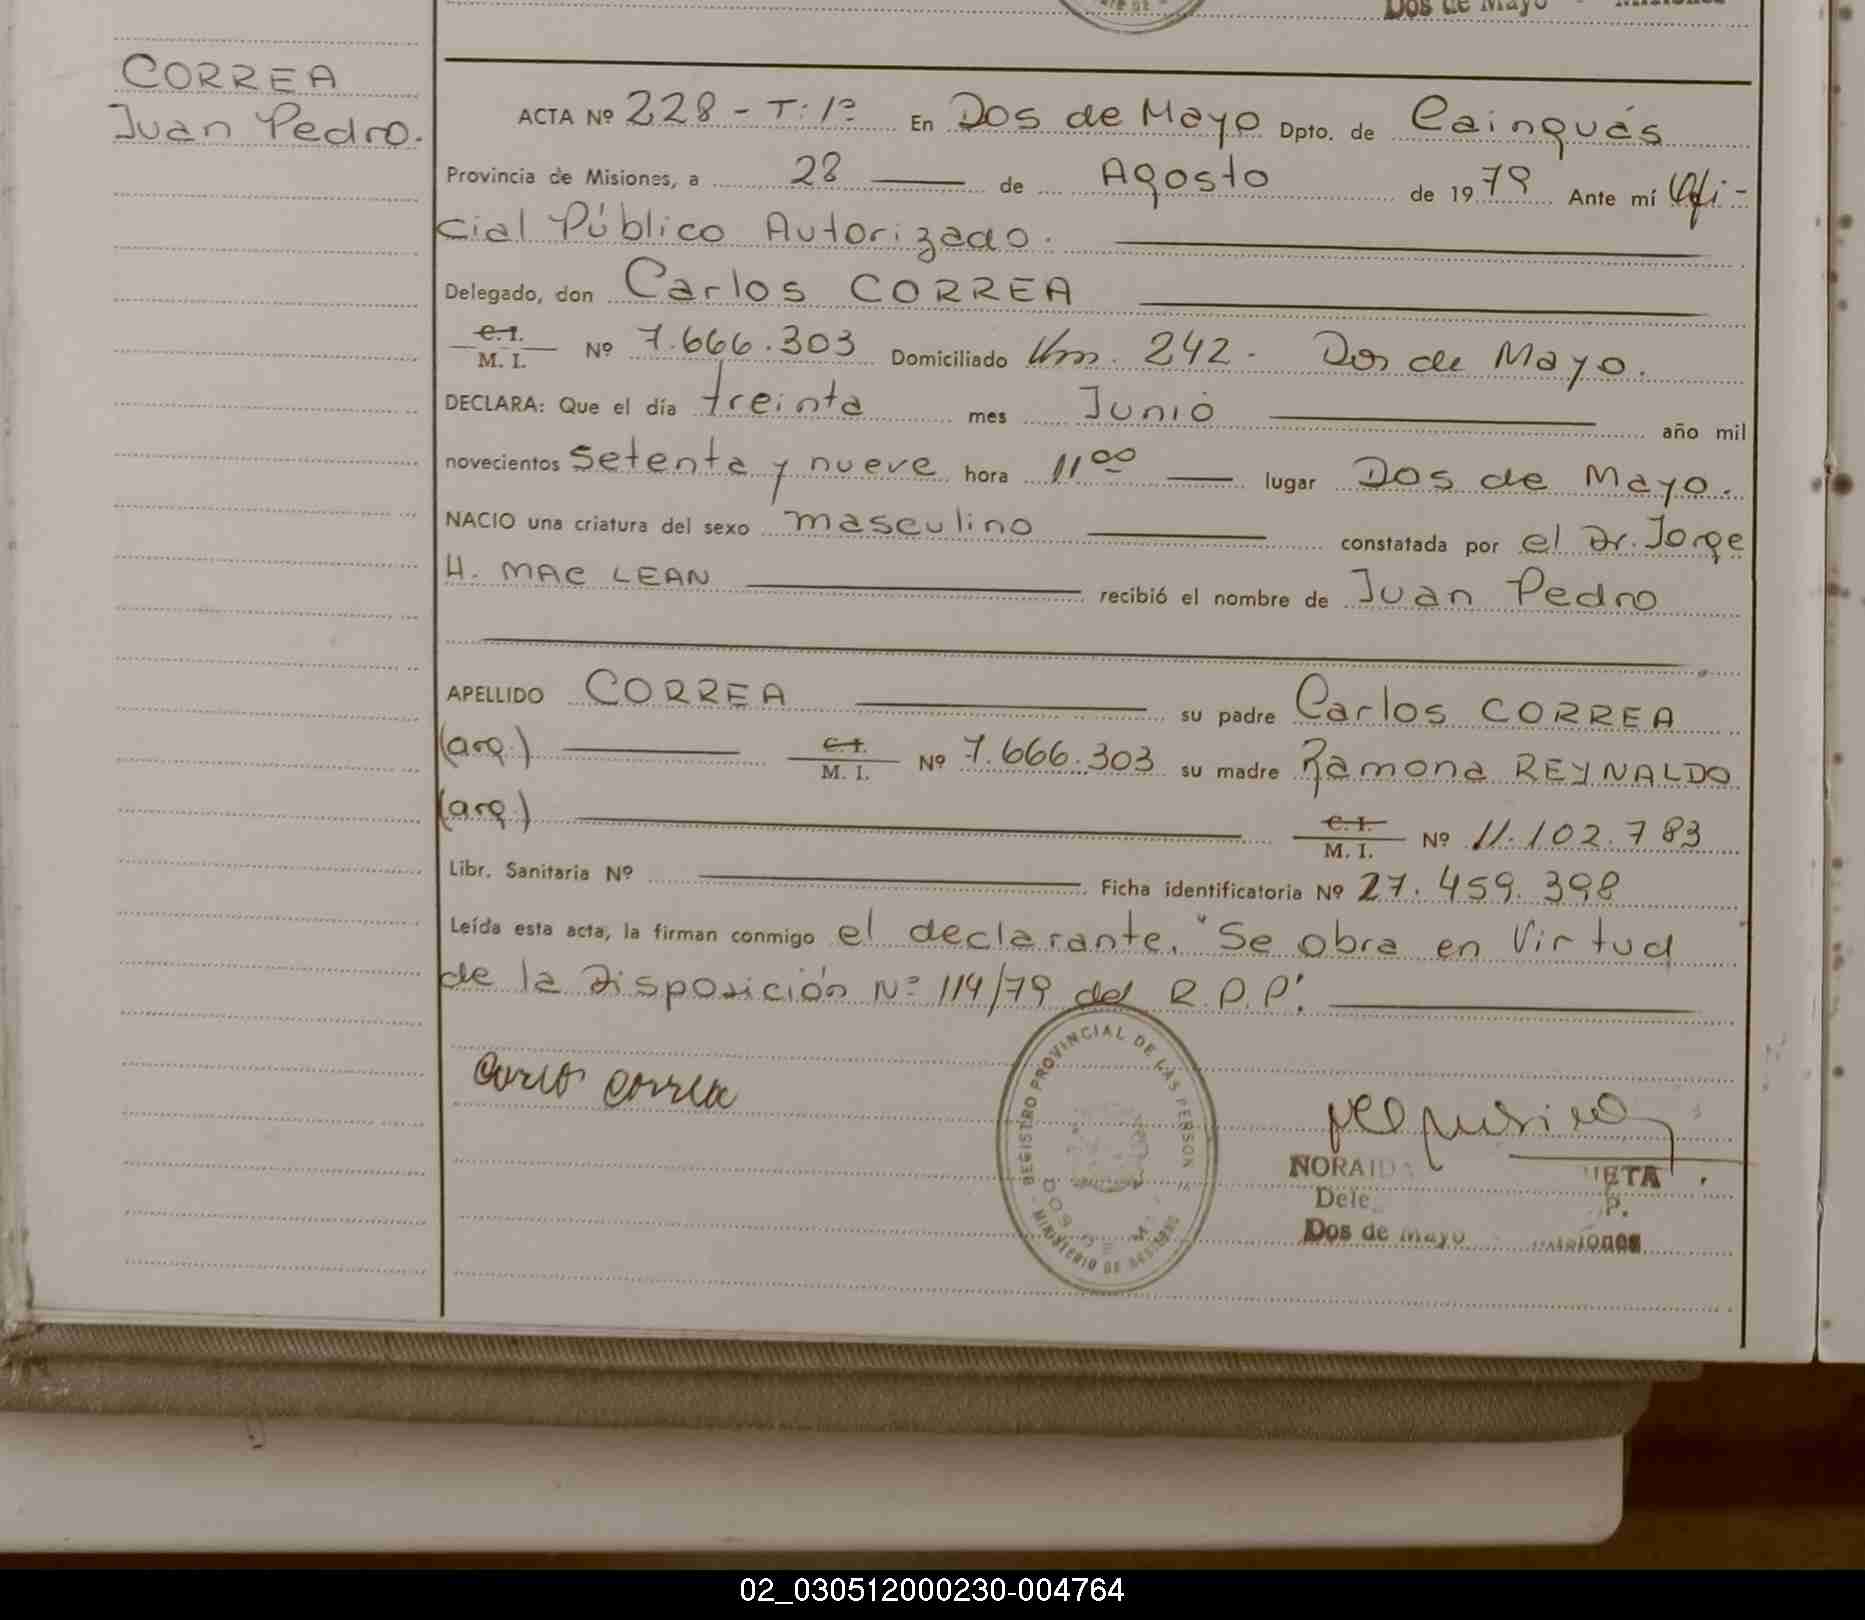 Dos de Mayo - Misiones
CORREA
Juan Pedro.
ACTA Nº 228 - T: 1º En Dos de Mayo Dpto. de Cainguás
Provincia de Misiones, a 28 de Agosto de 1979 Ante mí Ofi-
cial Público Autorizado.
Delegado, don Carlos CORREA
C.I.
M. I. Nº 7.666.303 Domiciliado Km. 242. Dos de Mayo.
DECLARA: Que el día treinta mes Junio año mil
novecientos setenta y nueve hora 11 00 lugar Dos de Mayo.
NACIO una criatura del sexo masculino constatada por el Dr. Jorge
H. MAC LEAN recibió el nombre de Juan Pedro
APELLIDO CORREA su padre Carlos CORREA
(arg.) C.I. M. I. Nº 7.666.303 su madre Ramona REYNALDO
(arg.) C.I. M. I. Nº 11.102.783
Libr. Sanitaria Nº Ficha identificatoria Nº 27.459.398
Leída esta acta, la firman conmigo el declarante. "Se obra en Virtud
de la Disposición Nº 114/79 del R.P.P."
Carlos Correa
REGISTRO PROVINCIAL DE LAS PERSON
MINISTERIO DE
NORAIDA
Dele
P.
Dos de Mayo Misiones
02_030512000230-004764